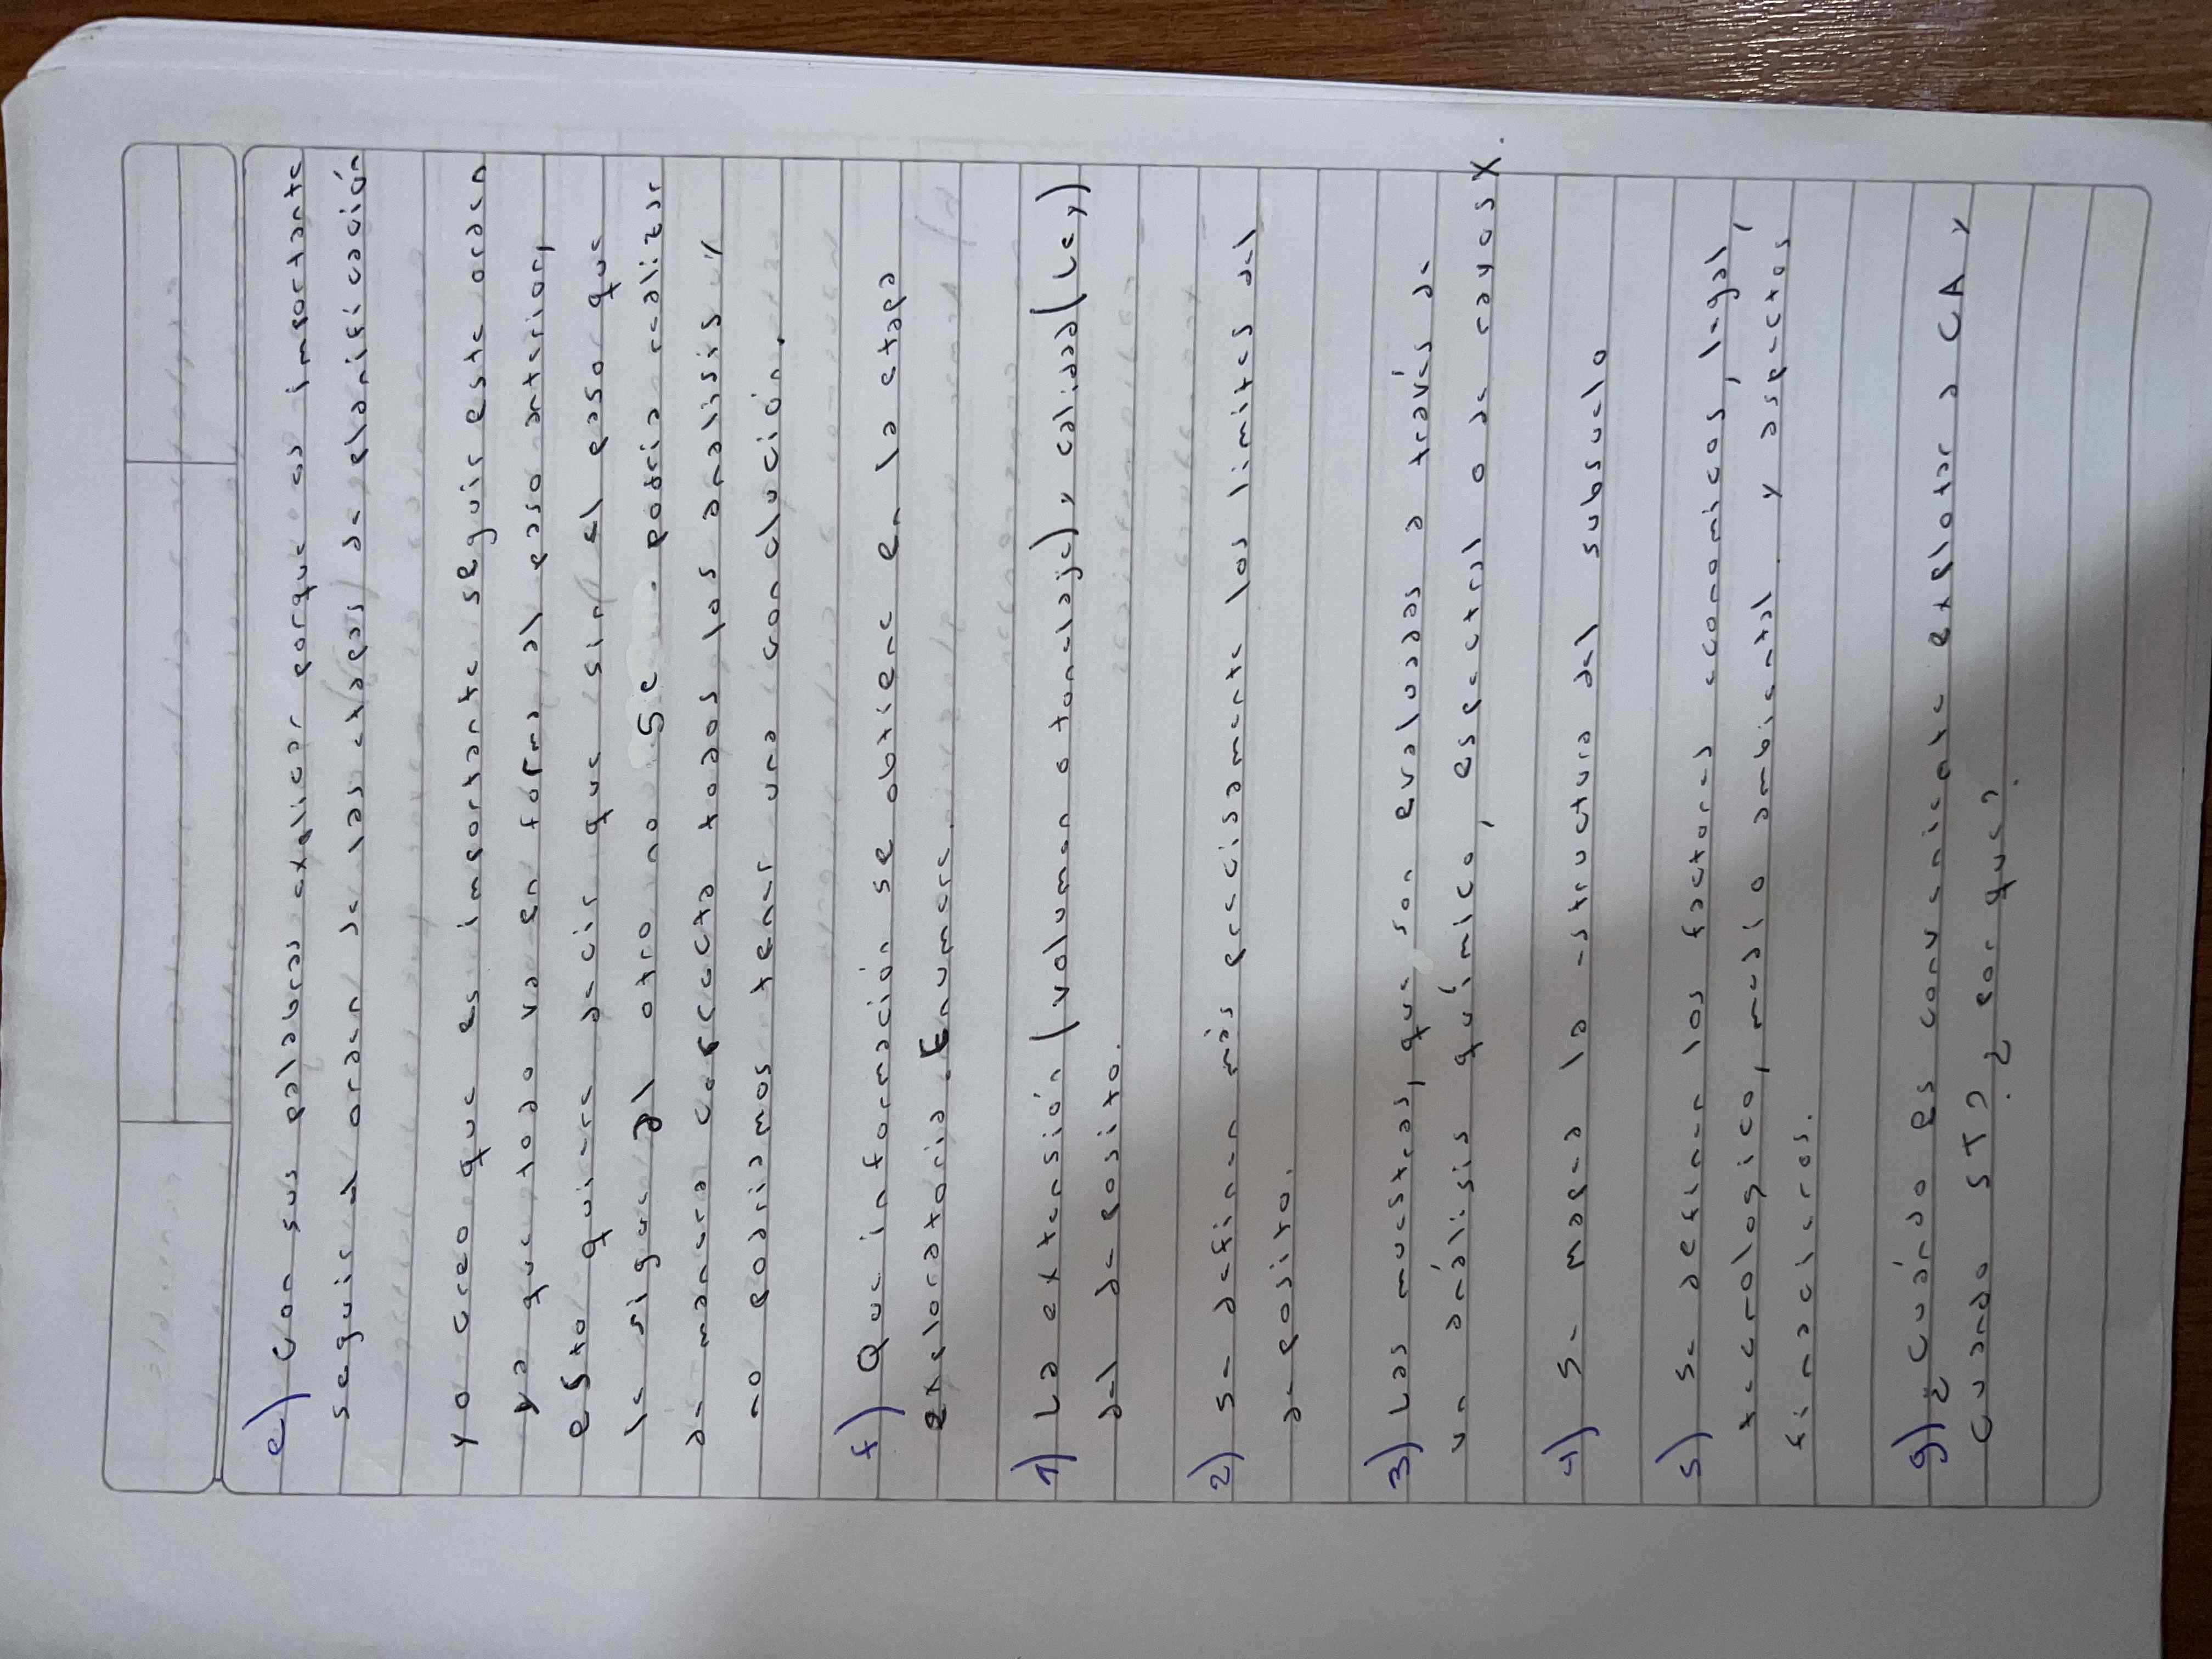 e) Con sus palabras explicar porque es importante
seguir el orden de las etapas de planificación
yo creo que es importante seguir este orden
ya que todo va en forma al paso anterior,
esto quiere decir que sin el paso que
le sigue al otro no se podria realizar
de manera correcta todos los analisis y
no podriamos tener una conclución.
f) Que información se obtiene en la etapa
exploratoria. Enumere.
1) La extensión (volumen o tonelaje) y calidad (Ley)
del deposito.
2) Se definen más precisamente los limites del
deposito.
3) Las muestras, que son evaluadas a través de
un análisis químico, espectral o de rayos X.
4) Se mapea la estructura del subsuelo
5) Se definen los factores economicos, legal,
tecnologico, medio ambiental y aspectos
financieros.
g) ¿Cuándo es conveniente explotar a CA y
cuando ST? ¿por qué?.